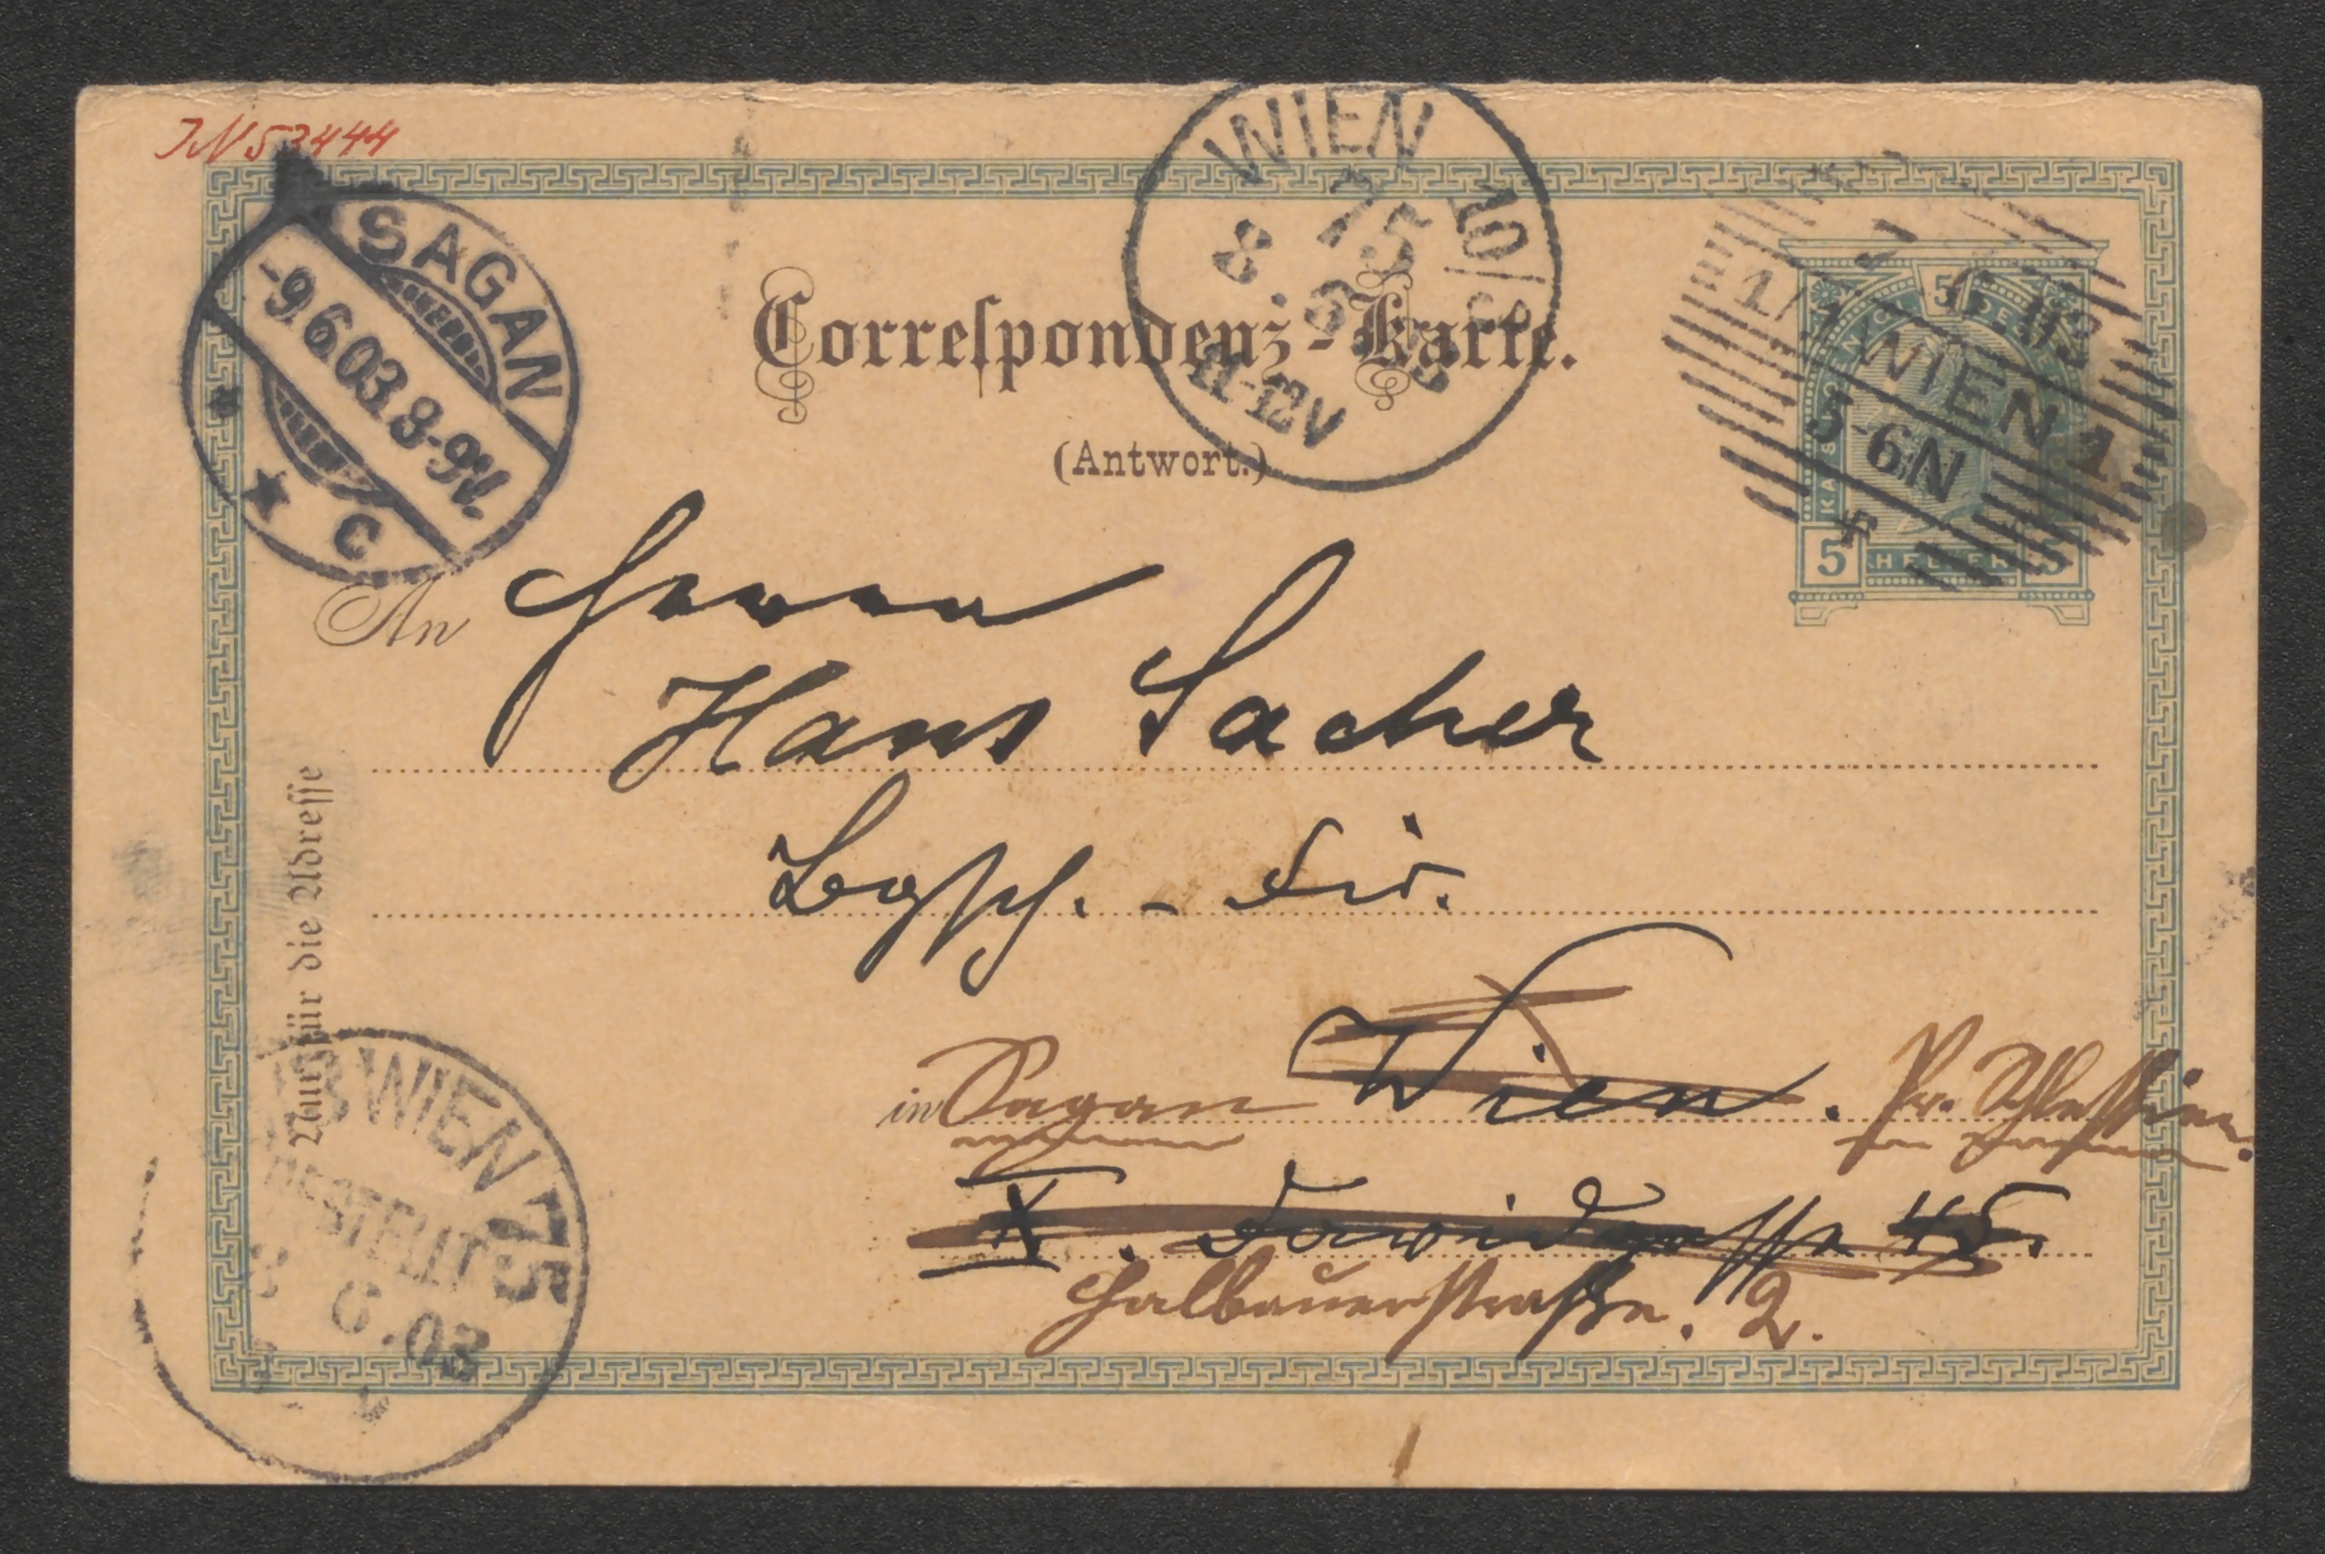 IN 53444
SAGAN
-9.6.03.8-9V.
* * C
WIEN 10/3
75
8.6.03
11-12V
1/1 WIEN 1
6.03
5-6N
5
KAIS
HELLER
5 5
Correſpondenz-Karte.
(Antwort.)
An Herrn
Hans Sacher
-Dir.
in Sagan Wien. Pr. Schlesien.
X. Davidgasse 45.
Halbauerstraße. 2.
Nur für die Adreſſe
WIEN 75
BESTELLT
6.03